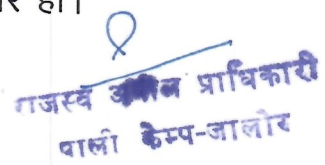 हो।
राजस्व अपील प्राधिकारी
पाली केम्प-जालोर